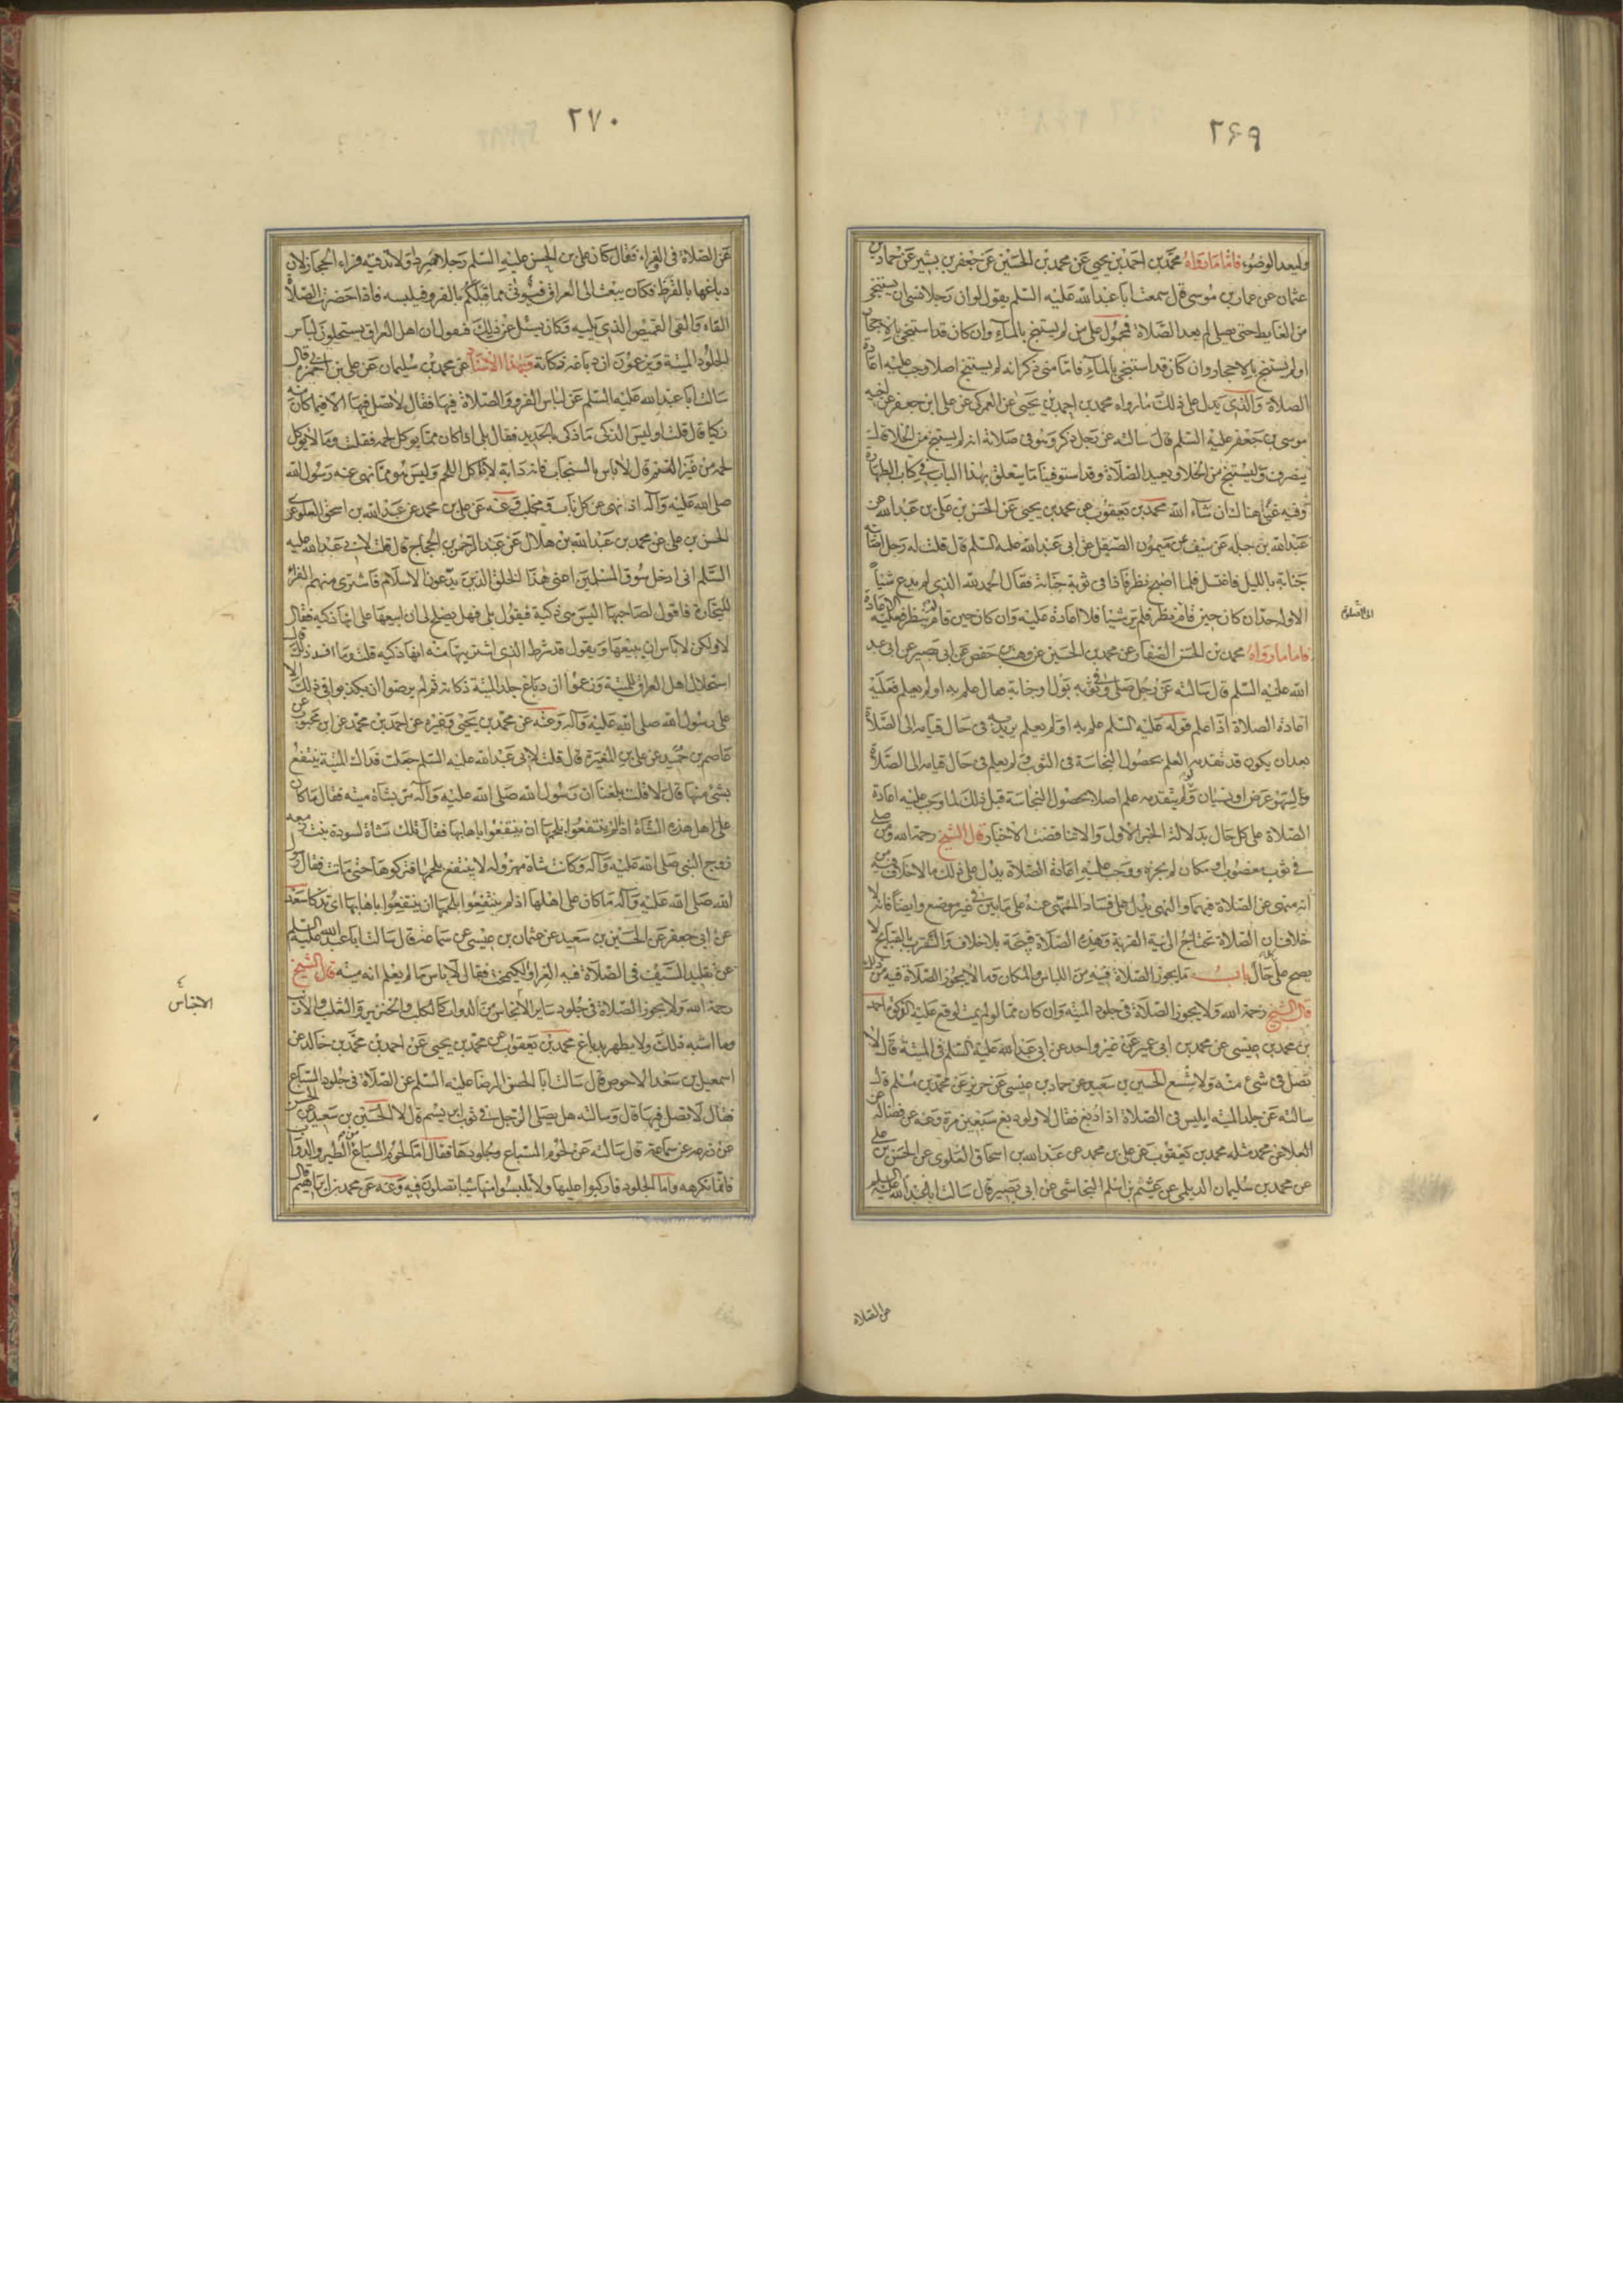 ٢٦٩
وليعد الوضوء فاما ما رواه محمد بن احمد بن يحيى عن محمد بن الحسين عن جعفر بن بشير عن حماد بن
عثمان عن عمار بن موسى قال سمعت ابا عبد الله عليه السلم يقول لو ان رجلا نسى ان يستنجى
من الغايط حتى يصلى لم يعد الصلاة فمحمول على من لم يستنج بالمآء وان كان قد استنجى بالاحجار
او لم يستنج بالاحجار وان كان قد استنجى بالمآء فاما متى ذكر انه لم يستنج اصلا وجب عليه اعادة
الصلاة والذى يدل على ذلك ما رواه محمد بن احمد بن يحيى عن العمركى عن على ابن جعفر عن اخيه
موسى بن جعفر عليه السلم قال سالته عن رجل ذكر وهو فى صلاته انه لم يستنج من الخلا قال
ينصرف ويستنجى من الخلا ويعيد الصلاة وقد استوفينا ما يتعلق بهذا الباب فى كتاب الطهارة
وفيه غنى هنالك ان شآء الله محمد بن يعقوب عن محمد بن يحيى عن الحسن بن على بن عبد الله عن
عبد الله بن جبله عن سيف عن ميمون الصيقل عن ابى عبد الله عليه السلم قال قلت له رجل اصابته
جنابة بالليل فاغتسل فلما اصبح نظر فاذا فى ثوبه جنابة فقال الحمد لله الذى لم يدع شيأ
الا وله حد ان كان حين قام نظر فلم ير شيئا فلا اعادة عليه وان كان حين قام لم ينظر فعليه الاعادة
فاما ما رواه محمد بن الحسن الصفار عن محمد بن الحسين عن وهيب بن حفص عن ابى بصير عن ابى عبد
الله عليه السلم قال سالته عن رجل صلى وفى ثوبه بول او جنابة فقال علم به او لم يعلم فعليه
اعادة الصلاة اذا علم قوله عليه السلم علم به او لم يعلم يريد به فى حال قيامه الى الصلاة
بعد ان يكون قد تقدمه العلم بحصول النجاسة فى الثوب ولم يعلم فى حال قيامه الى الصلاة
لسهو عرض او نسيان ولو لم يتقدمه علم اصلا بحصول النجاسة قبل ذلك لما وجب عليه اعادة
الصلاة على كل حال بدلالة الخبر الاول والا تناقضت الاخبار قال الشيخ رحمه الله ومن صلى
فى ثوب مغصوب او مكان لم يجزه ووجب عليه اعادة الصلاة يدل على ذلك ما لا خلاف فيه من
انه منهى عن الصلاة فيهما والنهى يدل على فساد المنهى عنه على ما بين فى غير موضع وايضا فانه لا
خلاف ان الصلاة تحتاج الى نية القربة وهذه الصلاة قبيحة بلا خلاف والتقرب بالقبايح لا
يصح على حال باب ما يجوز الصلاة فيه من اللباس والمكان وما لا يجوز الصلاة فيه من ذلك
قال الشيخ رحمه الله ولا يجوز الصلاة فى جلود الميتة وان كان مما لو لم يمت لوقع عليه الذكوة احمد
بن محمد بن عيسى عن محمد بن ابى عمير عن غير واحد عن ابى عبد الله عليه السلم فى الميتة قال لا
تصل فى شئ منه ولا شسع الحسين بن سعيد عن حماد بن عيسى عن حريز عن محمد بن مسلم قال
سالته عن جلد الميته ايلبس فى الصلاة اذا دبغ فقال لا ولو دبغ سبعين مرة وعنه عن فضالة عن
العلا عن محمد مثله محمد بن يعقوب عن على بن محمد عن عبد الله بن اسحاق العلوى عن الحسن بن على
عن محمد بن سليمان الديلمى عن عيثم بن اسلم النجاشى عن ابى بصير قال سالت ابا عبد الله عليه السلم
الى الصلوة
عن الصلاة
٢٧٠
عن الصلاة فى الفراء فقال كان على بن الحسن عليه السلم رجلا صردا ولا تدفيه فراء الحجاز لان
دباغها بالقرظ فكان يبعث الى العراق فيؤتى مما قبلكم بالفرو فيلبسه فاذا حضرت الصلاة
القاه والقى القميص الذى يليه فكان يسئل عن ذلك فيقول ان اهل العراق يستحلون لباس
الجلود الميتة ويزعمون ان دباغه ذكاته وبهذا الاسناد عن محمد بن سليمان عن على بن ابى حمزه قال
سالت ابا عبد الله عليه السلم عن لباس الفرو والصلاة فيها فقال لا تصل فيها الا فيما كان منه
ذكيا قال قلت او ليس الذكى ما ذكى بالحديد فقال بلى اذا كان مما يوكل لحمه فقلت وما لا يوكل
لحمه من غير الغنم قال لا باس بالسنجاب فانه دابة لا تاكل اللحم وليس هو مما نهى عنه رسول الله
صلى الله عليه وآله اذ نهى عن كل ناب ومخلب وعنه عن على بن محمد عن عبد الله بن اسحق العلوى عن
الحسن بن على عن محمد بن عبد الله بن هلال عن عبد الرحمن بن الحجاج قال قلت لابى عبد الله عليه
السلم انى ادخل سوق المسلمين اعنى هذا الخلق الذين يدعون الاسلام فاشترى منهم الفراء
للتجارة فاقول لصاحبها اليس هى ذكية فيقول بلى فهل يصلح لى ان ابيعها على انها ذكيه فقال
لا ولكن لا باس ان يبيعها ويقول قد شرط الذى اشتريتها منه انها ذكيه قلت وما افسد ذلك قال
استحلال اهل العراق للميتة وزعموا ان دباغ جلد الميتة ذكاته ثم لم يرضوا ان يكذبوا فى ذلك الا
على رسول الله صلى الله عليه وآله وعنه عن محمد بن يحيى وغيره عن احمد بن محمد عن ابن محبوب عن
عاصم بن حميد عن على بن المغيرة قال قلت لابى عبد الله عليه السلم جعلت فداك الميتة ينتفع
بشئ منها قال لا قلت بلغنا ان رسول الله صلى الله عليه وآله مر بشاة ميته فقال ما كان
على اهل هذه الشاة اذ لم ينتفعوا بلحمها ان ينتفعوا باهابها فقال تلك شاة لسودة بنت زمعه
زوج النبى صلى الله عليه وآله وكانت شاة مهزوله لا ينتفع بلحمها فتركوها حتى ماتت فقال رسول
الله صلى الله عليه وآله ما كان على اهلها اذ لم ينتفعوا بلحمها ان ينتفعوا باهابها اى تذكا سعد
عن ابى جعفر عن الحسين بن سعيد عن عثمان بن عيسى عن سماعة قال سالت ابا عبد الله عليه السلم
عن تقليد السيف فى الصلاة فيه الفرا والكيمخت فقال لا باس ما لم يعلم انه ميته قال الشيخ
رحمه الله ولا يجوز الصلاة فى جلود ساير الانجاس من الدواب كالكلب والخنزير والثعلب والارنب
وما اشبه ذلك ولا يطهر بدباغ محمد بن يعقوب عن محمد بن يحيى عن احمد بن محمد بن خالد عن
اسمعيل بن سعد الاحوص قال سالت ابا الحسن الرضا عليه السلم عن الصلاة فى جلود السباع
فقال لا تصل فيها قال وسالته هل يصلى الرجل فى ثوب ابريسم قال لا الحسين بن سعيد عن الحسن
عن زرعه عن سماعة قال سالته عن لحوم السباع وجلودها فقال اما لحوم السباع من الطير والدواب
فانا نكرهه واما الجلود فاركبوا عليها ولا تلبسوا منها شيأ تصلون فيه وعنه عن محمد بن ابراهيم قال
الانجاس